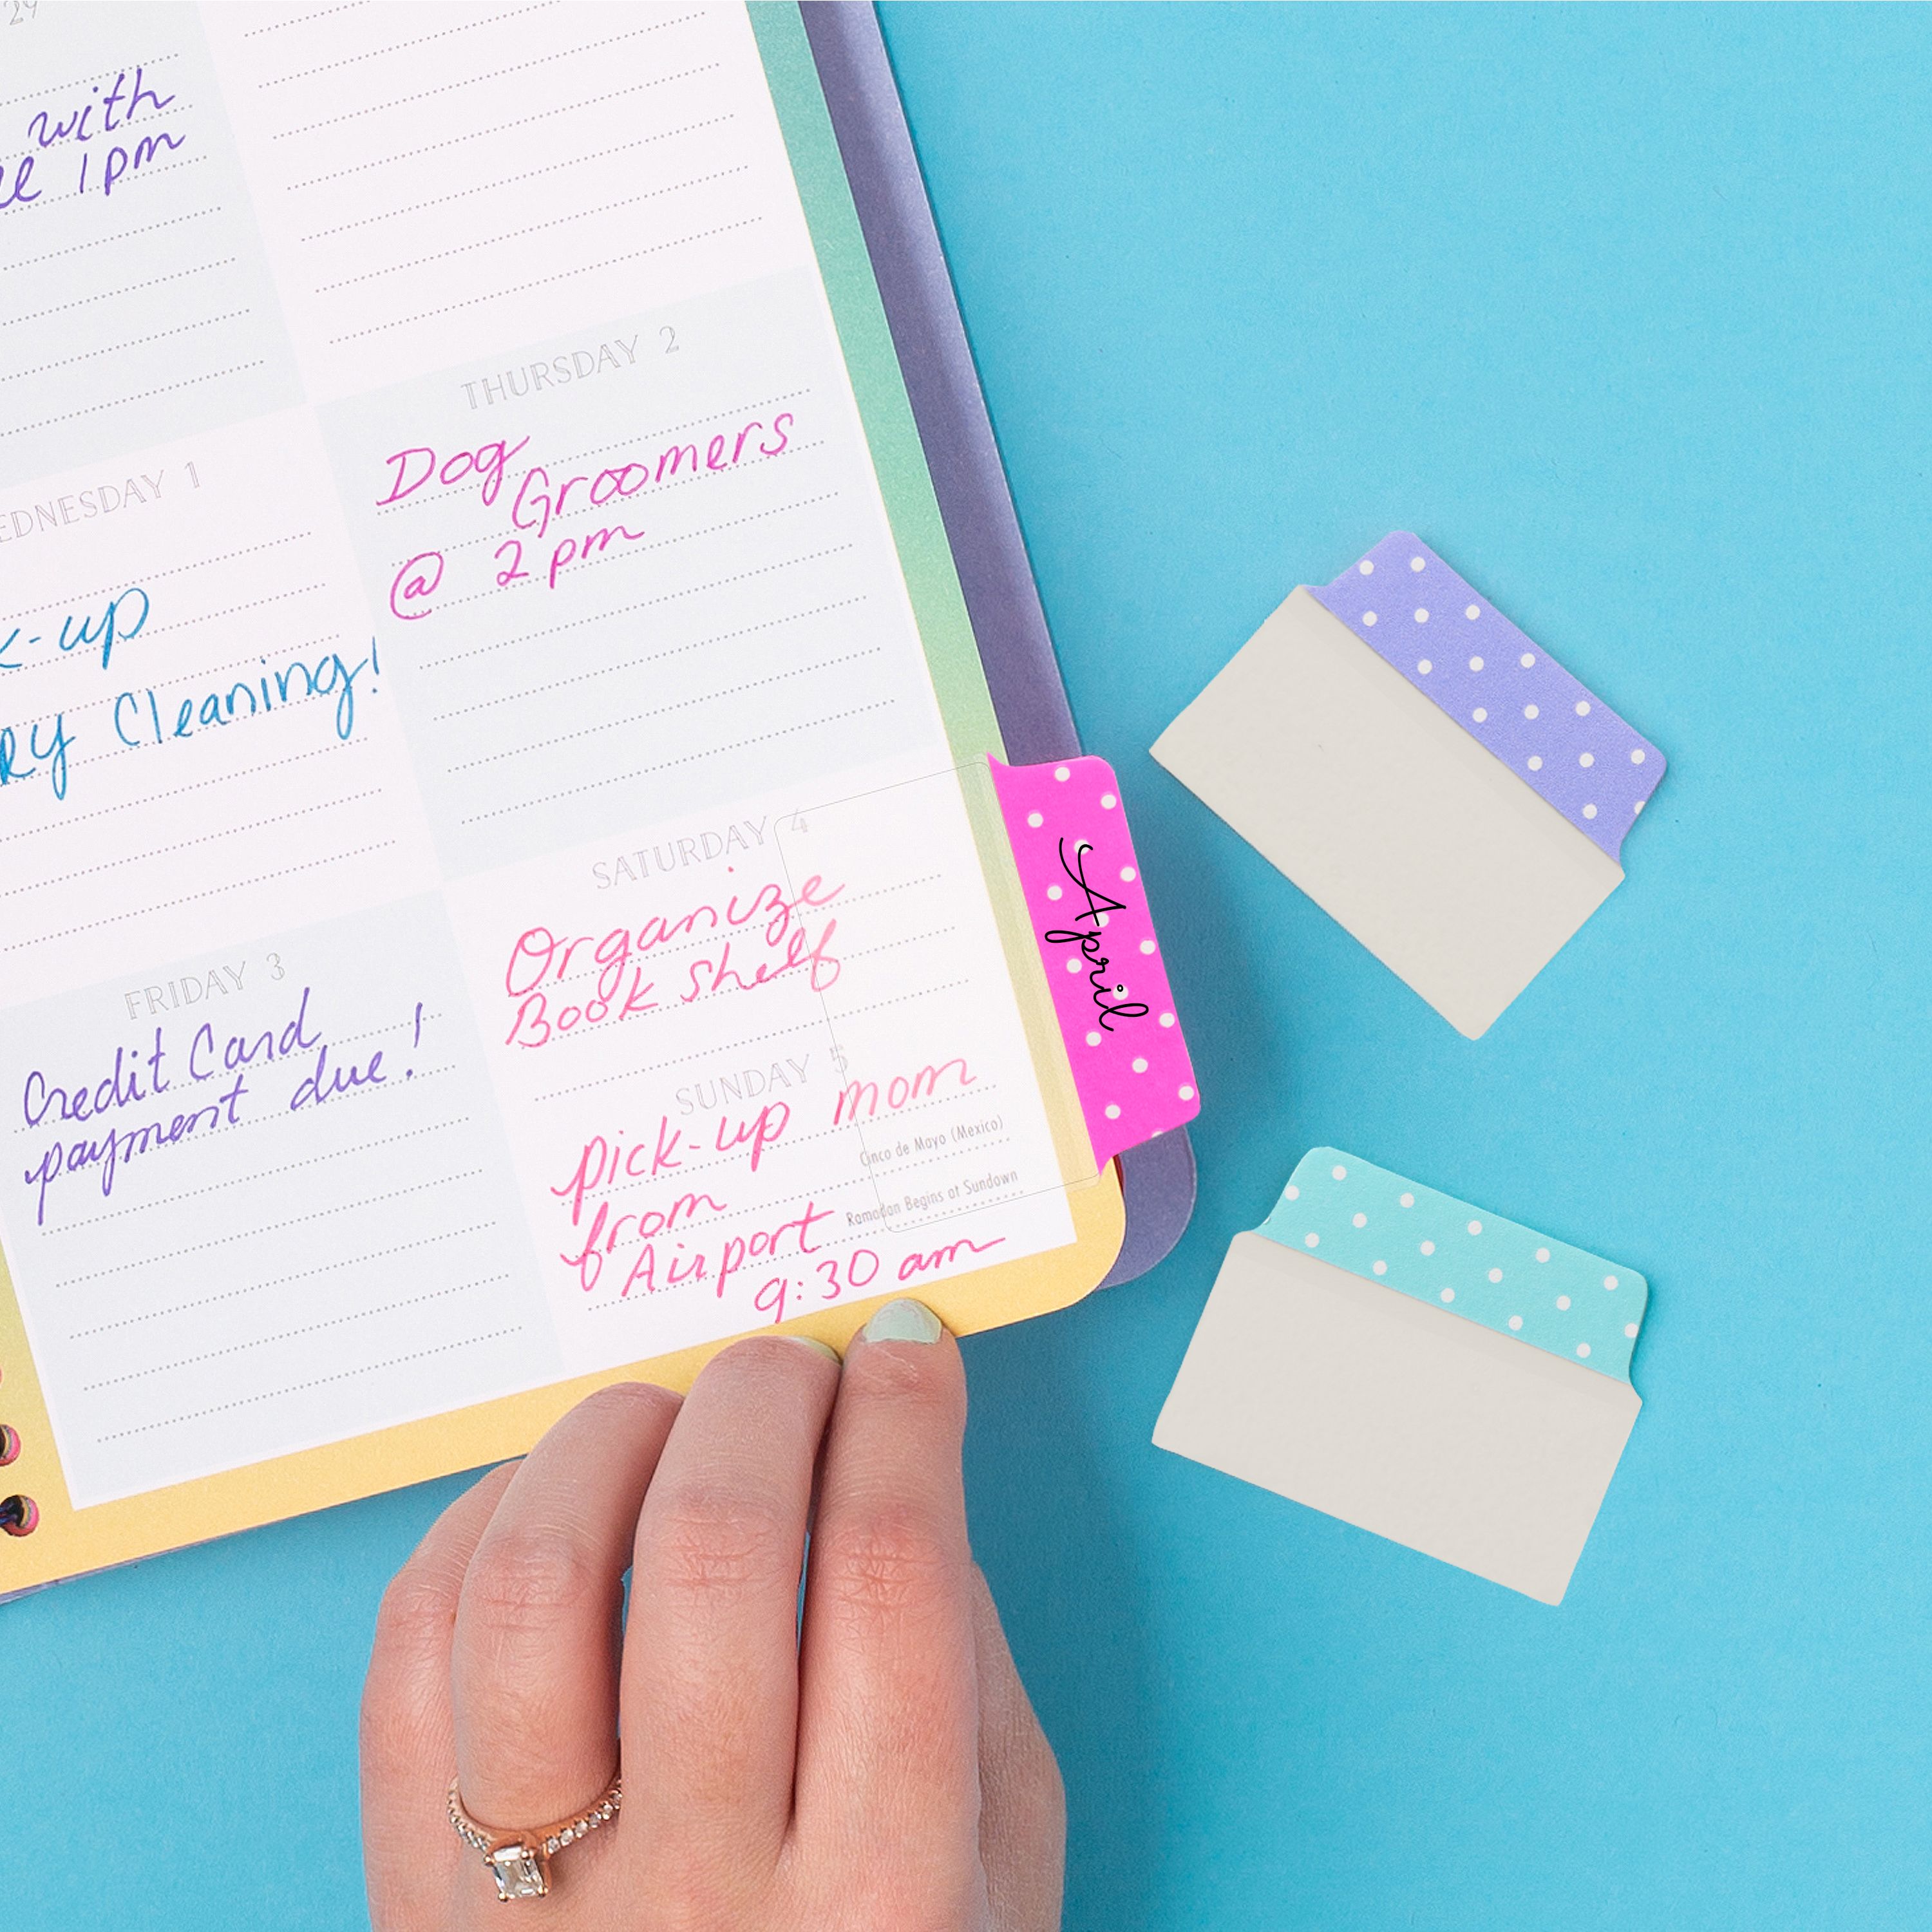 29
with
1pm
THURSDAY 2
Dog
Groomers
@ 2pm
WEDNESDAY 1
-up
Cleaning!
SATURDAY 4
Organize
Book shelf
FRIDAY 3
Credit Card
payment due!
SUNDAY 5
pick-up mom
Cinco de Mayo (Mexico)
from
Ramadan Begins at Sundown
Airport
9:30 am
April